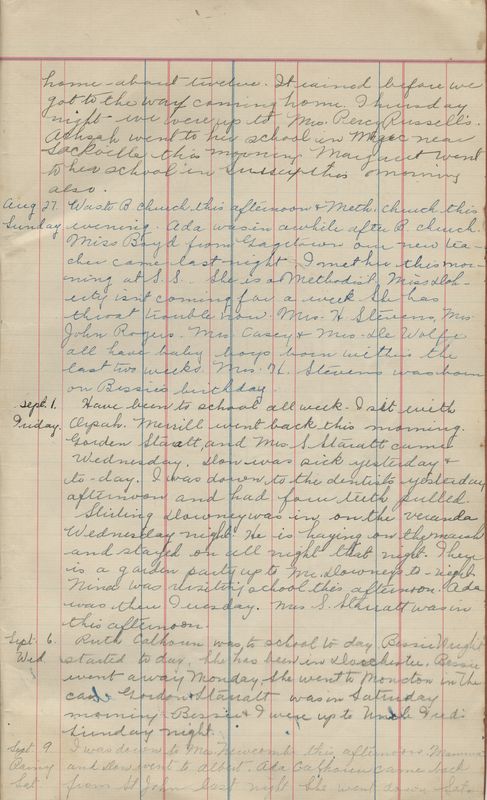 home - about twelve. It rained before we
got to the way coming home. Thursday
night we were up to Mrs. Percy Russell's.
Achsah went to her school in near
Sackville this morning. Margaret went
to her school in Sussex this morning
also.
Aug 27. Was to B. church this afternoon & Meth. church this
Sunday evening. Ada was in awhile after B. church.
Miss Boyd from Gagetown our new tea-
cher came last night. I met her this mor-
ning at S.S. She is a Methodist. Miss Doh-
erty isn't coming for a week. She has
throat trouble now. Mrs. H Stevens, Mrs.
John Rogers, Mrs. Casey & Mrs. De Wolfe
all have baby boys born within the
last two weeks. Mrs. H. Stevens was born
on Bessie's birthday.
Sept. 1. Have been to school all week. I sit with
Friday. Orpah. Merrill went back this morning.
Gorden Staratt, and Mrs. S. Staratt came
Wednesday. Don was sick yesterday &
to-day. I was down to the dentists yesterday
afternoon and had four teeth pulled.
Stirling Downey was in on the veranda
Wednesday night. He is haying on the marsh
and stayed on all night that night. There
is a garden party up to Mr. Downey's to-night.
Nina was visiting school this afternoon. Ada
was then Tuesday. Mrs. S. Staratt was in
this afternoon.
Sept. 6. Ruth Calhoun was to school to day. Bessie Wright
Wed. started to day. She has been in Dorchester. Bessie
went away Monday. She went to Moncton in the
car. Gordon Staratt was in Saturday
morning. Bessie & I were up to Uncle Fred's
Sunday night.
Sept 9. I was down to Mrs Newcombs this afternoon. Mamma
Rainy and Don went to Albert. Ada Calhoun came back
Sat. from St John last night. She went down